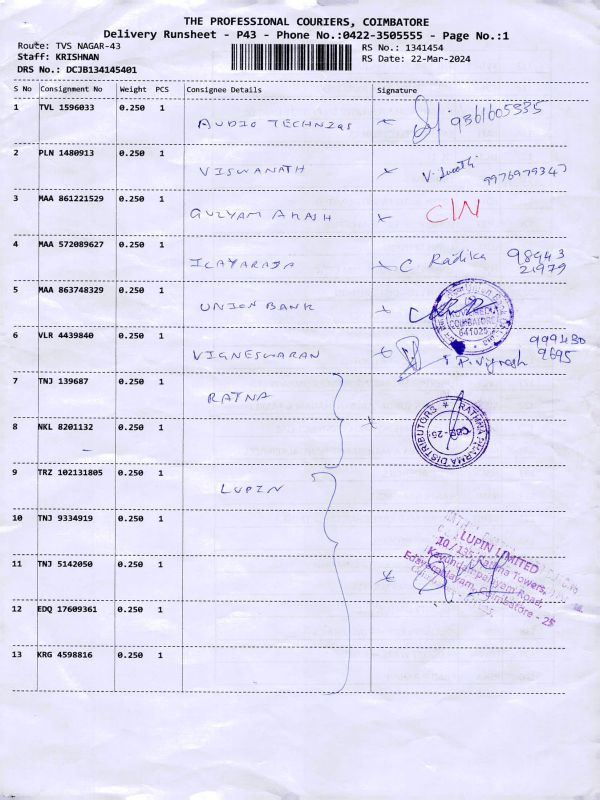 THE PROFESSIONAL COURIERS, COIMBATORE
Delivery Runsheet - P43 - Phone No.:0422-3505555 - Page No.:1
Route: TVS NAGAR-43 RS No.: 1341454
Staff: KRISHNAN RS Date: 22-Mar-2024
DRS No.: DCJB134145401
S No Consignment No Weight PCS Consignee Details Signature
1 TVL 1596033 0.250 1 AUDIO TECHNIQS 9361605335
2 PLN 1480913 0.250 1 VISWANATH V. Swathi 9976979347
3 MAA 861221529 0.250 1 AKASH
4 MAA 572089627 0.250 1 ILAYARAJA C Radika 98943 21979
5 MAA 863748329 0.250 1 UNION BANK COIMBATORE 641025
6 VLR 4439840 0.250 1 VIGNESWARAN 9695
7 TNJ 139687 0.250 1 RATNA
8 NKL 8201132 0.250 1 RATHNA PHARMA DISTRIBUTORS CBE-25
9 TRZ 102131805 0.250 1 LUPIN
10 TNJ 9334919 0.250 1
LUPIN LIMITED
10/135, Rathna Towers,
Kavundampalayam Road,
Edayarpalayam, Coimbatore - 25
11 TNJ 5142050 0.250 1
12 EDQ 17609361 0.250 1
13 KRG 4598816 0.250 1